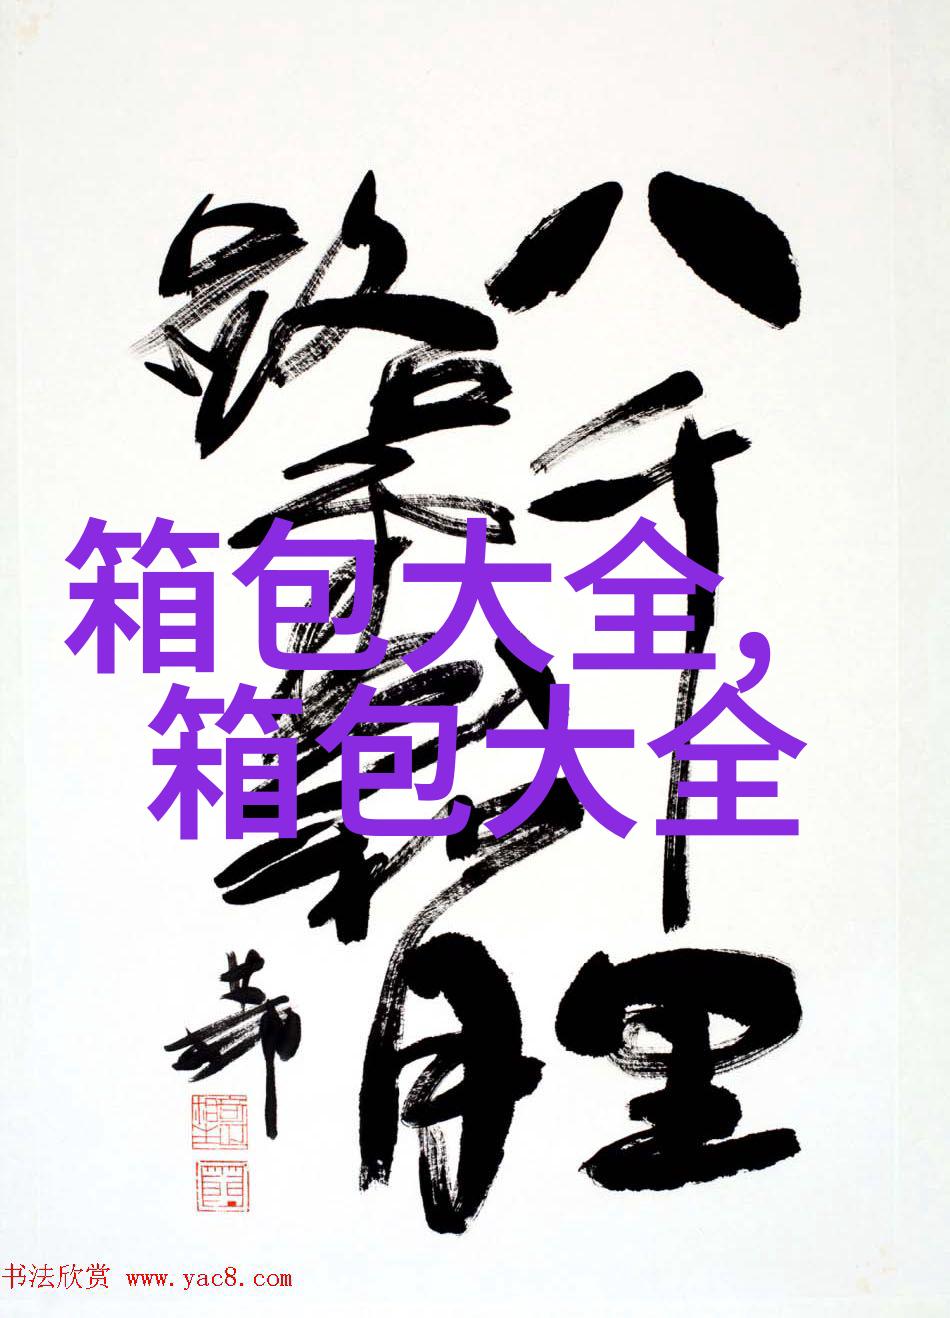 八千里
路 月
箱包大全,
箱包大全
书法欣赏 www.yac8.com